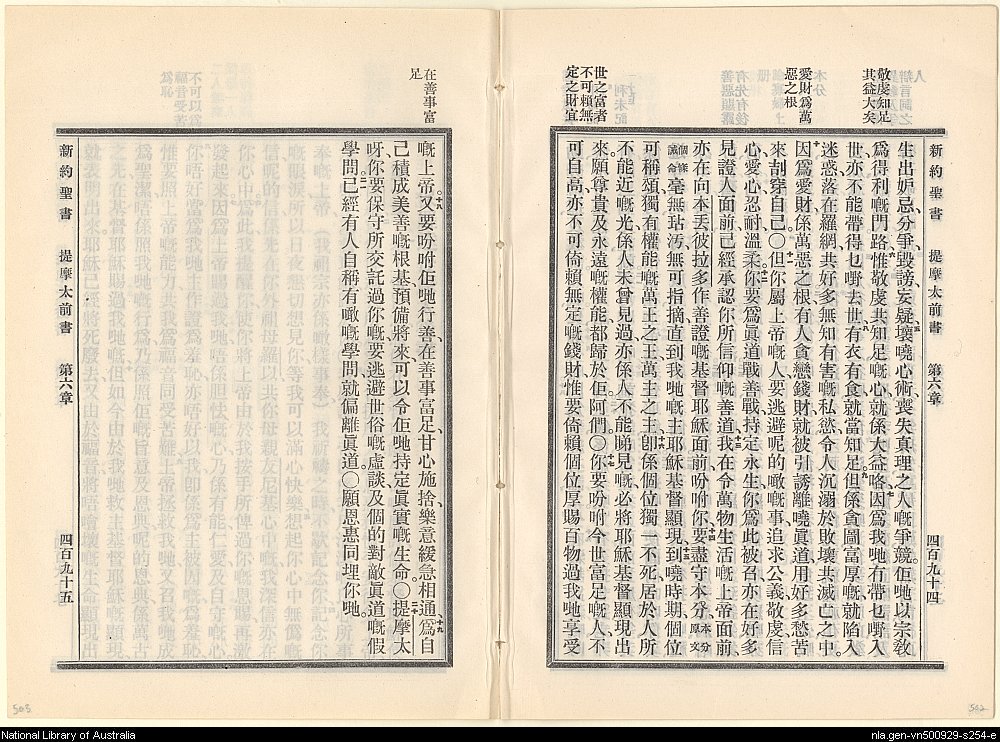 敬虔知足
其益大矣
愛財爲萬
惡之根
世之富者
不可賴無
定之財宜
新約聖書　提摩太前書　第六章　四百九十四
生出妒忌、分爭、毀謗、妄疑、五壞嘵心術、喪失真理之人嘅爭競。佢哋以宗敎
爲得利嘅門路。六惟敬虔共知足嘅心、就係大益咯、七因爲我哋冇帶乜嘢入
世、亦不能帶得乜嘢去世、八有衣有食、就當知足。九但係貪圖富厚嘅、就陷入
迷惑、落在羅網、共好多無知有害嘅私慾、令人沉溺於敗壞共滅亡之中。
十因爲愛財係萬惡之根、有人貪戀錢財、就被引誘離嘵真道、用好多愁苦
來刮穿自己。〇十一但你屬上帝嘅人、要逃避呢的噉事、追求公義敬虔信
心愛心忍耐溫柔。十二你要爲真道戰善戰、持定永生、你爲此被召、亦在好多
見證人面前、已經承認你所信仰嘅善道。十三我在令萬物生活嘅上帝面前、
亦在向本丟彼拉多作善證嘅基督耶穌面前吩咐你、十四要盡守本分、本分原文
係誡命毫無玷污、無可指摘、直到我哋嘅主耶穌基督顯現、十五到嘵時期、個位
可稱頌獨有權能嘅、萬王之王、萬主之主、十六卽係個位獨一不死、居於人所
不能近嘅光、係人未曾見過、亦係人不能睇見嘅、必將耶穌基督顯現出
來、願尊貴及永遠嘅權能、都歸於佢、阿們。〇十七你要吩咐今世富足嘅人、不
可自高、亦不可倚賴無定嘅錢財、惟要倚賴個位厚賜百物過我哋享受
在善事富
足
嘅上帝。十八又要吩咐佢哋行善、在善事富足、甘心施捨、樂意緩急相通、十九爲自
己積成美善嘅根基、預備將來、可以令佢哋持定眞實嘅生命。〇二十提摩太
呀、你要保守所交託過你嘅、要逃避世俗嘅虛談、及個的對敵眞道嘅假
學問。二一已經有人自稱有噉嘅學問、就偏離眞道。〇願恩惠同埋你哋。
新約聖書　提摩太前書　第六章　四百九十五
503
502
National Library of Australia
nla.gen-vn500929-s254-e